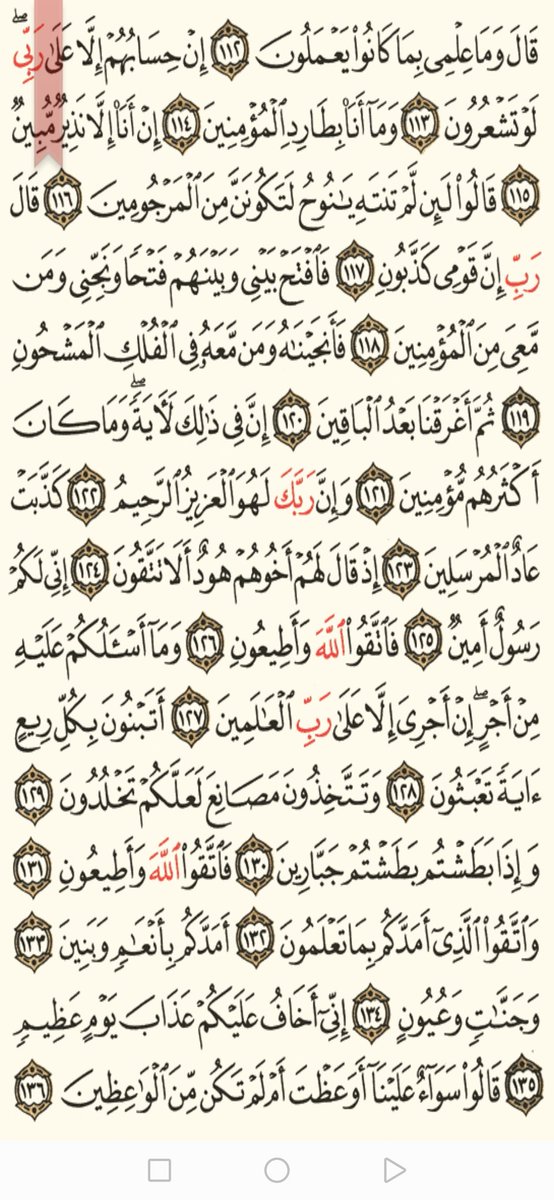 قَالَ وَمَا عِلْمِى بِمَا كَانُوا۟ يَعْمَلُونَ ١١٢ إِنْ حِسَابُهُمْ إِلَّا عَلَىٰ رَبِّى ۖ
لَوْ تَشْعُرُونَ ١١٣ وَمَآ أَنَا۠ بِطَارِدِ ٱلْمُؤْمِنِينَ ١١٤ إِنْ أَنَا۠ إِلَّا نَذِيرٌ مُّبِينٌ
١١٥ قَالُوا۟ لَئِن لَّمْ تَنتَهِ يَـٰنُوحُ لَتَكُونَنَّ مِنَ ٱلْمَرْجُومِينَ ١١٦ قَالَ
رَبِّ إِنَّ قَوْمِى كَذَّبُونِ ١١٧ فَٱفْتَحْ بَيْنِى وَبَيْنَهُمْ فَتْحًا وَنَجِّنِى وَمَن
مَّعِىَ مِنَ ٱلْمُؤْمِنِينَ ١١٨ فَأَنجَيْنَـٰهُ وَمَن مَّعَهُۥ فِى ٱلْفُلْكِ ٱلْمَشْحُونِ
١١٩ ثُمَّ أَغْرَقْنَا بَعْدُ ٱلْبَاقِينَ ١٢٠ إِنَّ فِى ذَٰلِكَ لَـَٔايَةً ۖ وَمَا كَانَ
أَكْثَرُهُم مُّؤْمِنِينَ ١٢١ وَإِنَّ رَبَّكَ لَهُوَ ٱلْعَزِيزُ ٱلرَّحِيمُ ١٢٢ كَذَّبَتْ
عَادٌ ٱلْمُرْسَلِينَ ١٢٣ إِذْ قَالَ لَهُمْ أَخُوهُمْ هُودٌ أَلَا تَتَّقُونَ ١٢٤ إِنِّى لَكُمْ
رَسُولٌ أَمِينٌ ١٢٥ فَٱتَّقُوا۟ ٱللَّهَ وَأَطِيعُونِ ١٢٦ وَمَآ أَسْـَٔلُكُمْ عَلَيْهِ
مِنْ أَجْرٍ ۖ إِنْ أَجْرِىَ إِلَّا عَلَىٰ رَبِّ ٱلْعَـٰلَمِينَ ١٢٧ أَتَبْنُونَ بِكُلِّ رِيعٍ
ءَايَةً تَعْبَثُونَ ١٢٨ وَتَتَّخِذُونَ مَصَانِعَ لَعَلَّكُمْ تَخْلُدُونَ ١٢٩
وَإِذَا بَطَشْتُم بَطَشْتُمْ جَبَّارِينَ ١٣٠ فَٱتَّقُوا۟ ٱللَّهَ وَأَطِيعُونِ ١٣١
وَٱتَّقُوا۟ ٱلَّذِىٓ أَمَدَّكُم بِمَا تَعْلَمُونَ ١٣٢ أَمَدَّكُم بِأَنْعَـٰمٍ وَبَنِينَ ١٣٣
وَجَنَّـٰتٍ وَعُيُونٍ ١٣٤ إِنِّىٓ أَخَافُ عَلَيْكُمْ عَذَابَ يَوْمٍ عَظِيمٍ
١٣٥ قَالُوا۟ سَوَآءٌ عَلَيْنَآ أَوَعَظْتَ أَمْ لَمْ تَكُن مِّنَ ٱلْوَٰعِظِينَ ١٣٦